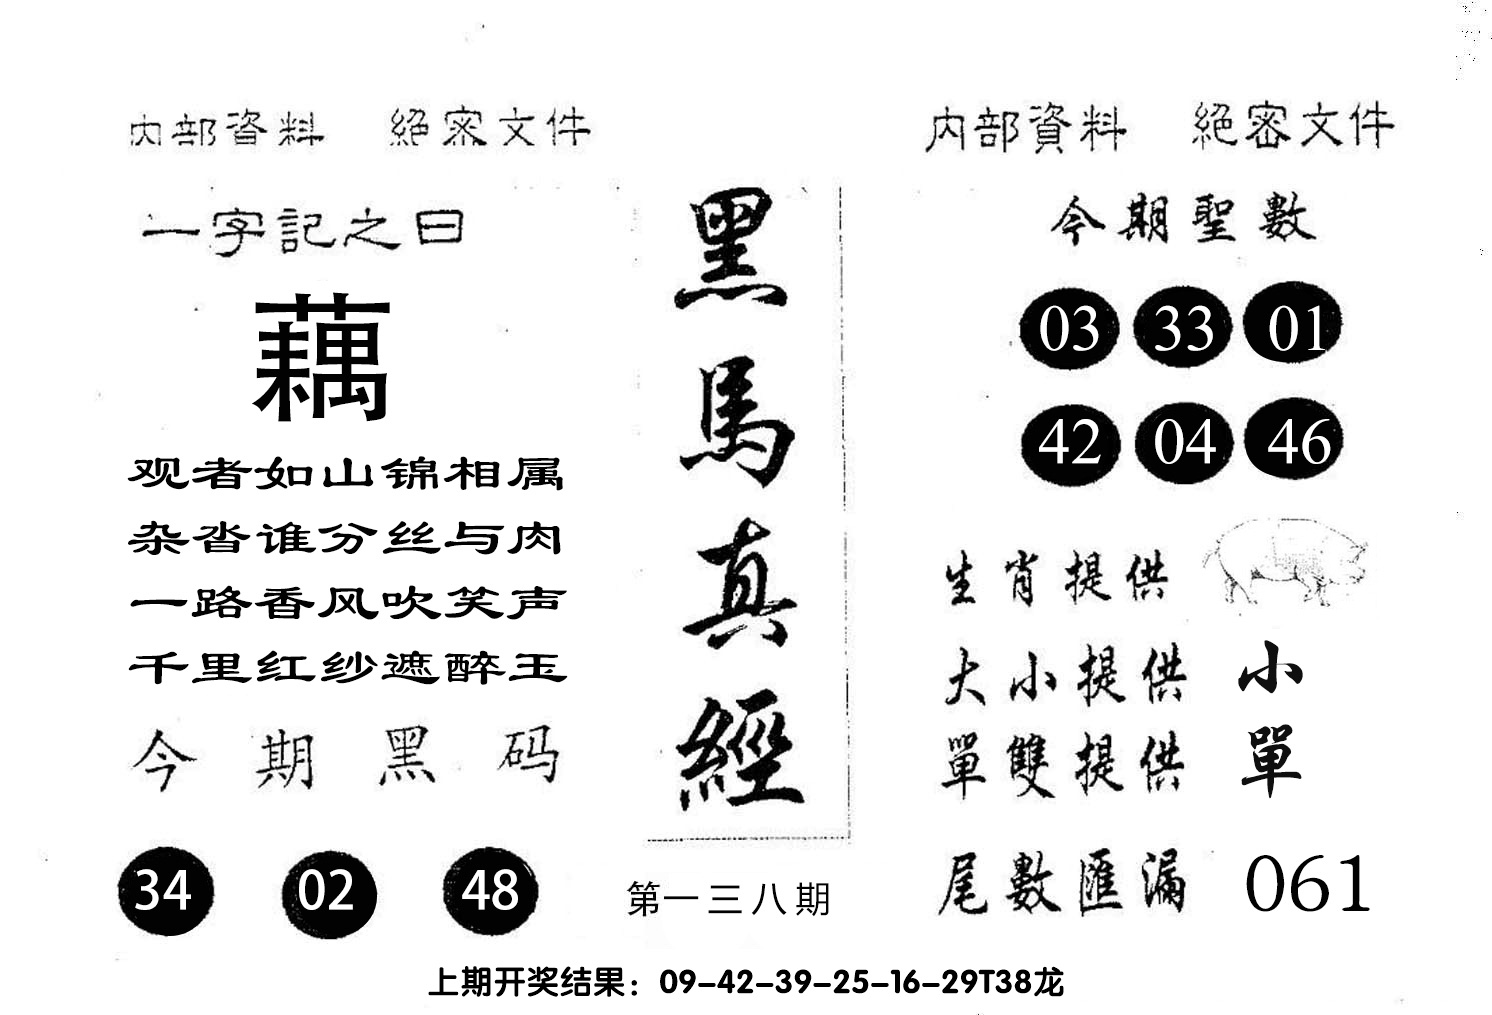 内部資料 絕密文件
一字記之曰
藕
观者如山锦相属
杂沓谁分丝与肉
一路香风吹笑声
千里红纱遮醉玉
今期黑码
34 02 48
黑馬真經
第一三八期
内部資料 絕密文件
今期聖數
03 33 01
42 04 46
生肖提供
大小提供 小
單雙提供 單
尾數匯漏 061
上期开奖结果：09-42-39-25-16-29T38龙